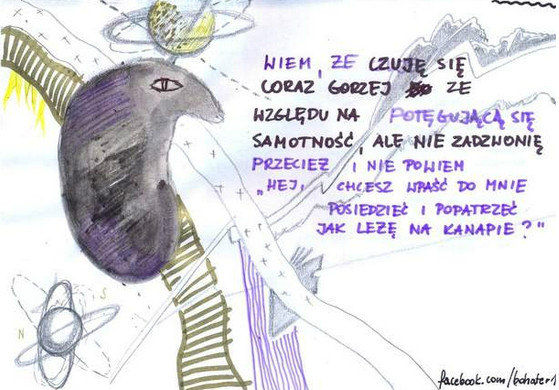 WIEM, ŻE CZUJĘ SIĘ
CORAZ GORZEJ ZE
WZGLĘDU NA POTĘGUJĄCĄ SIĘ
SAMOTNOŚĆ, ALE NIE ZADZWONIĘ
PRZECIEŻ I NIE POWIEM
"HEJ, CHCESZ WPAŚĆ DO MNIE
POSIEDZIEĆ I POPATRZEĆ
JAK LEŻĘ NA KANAPIE?"
N S